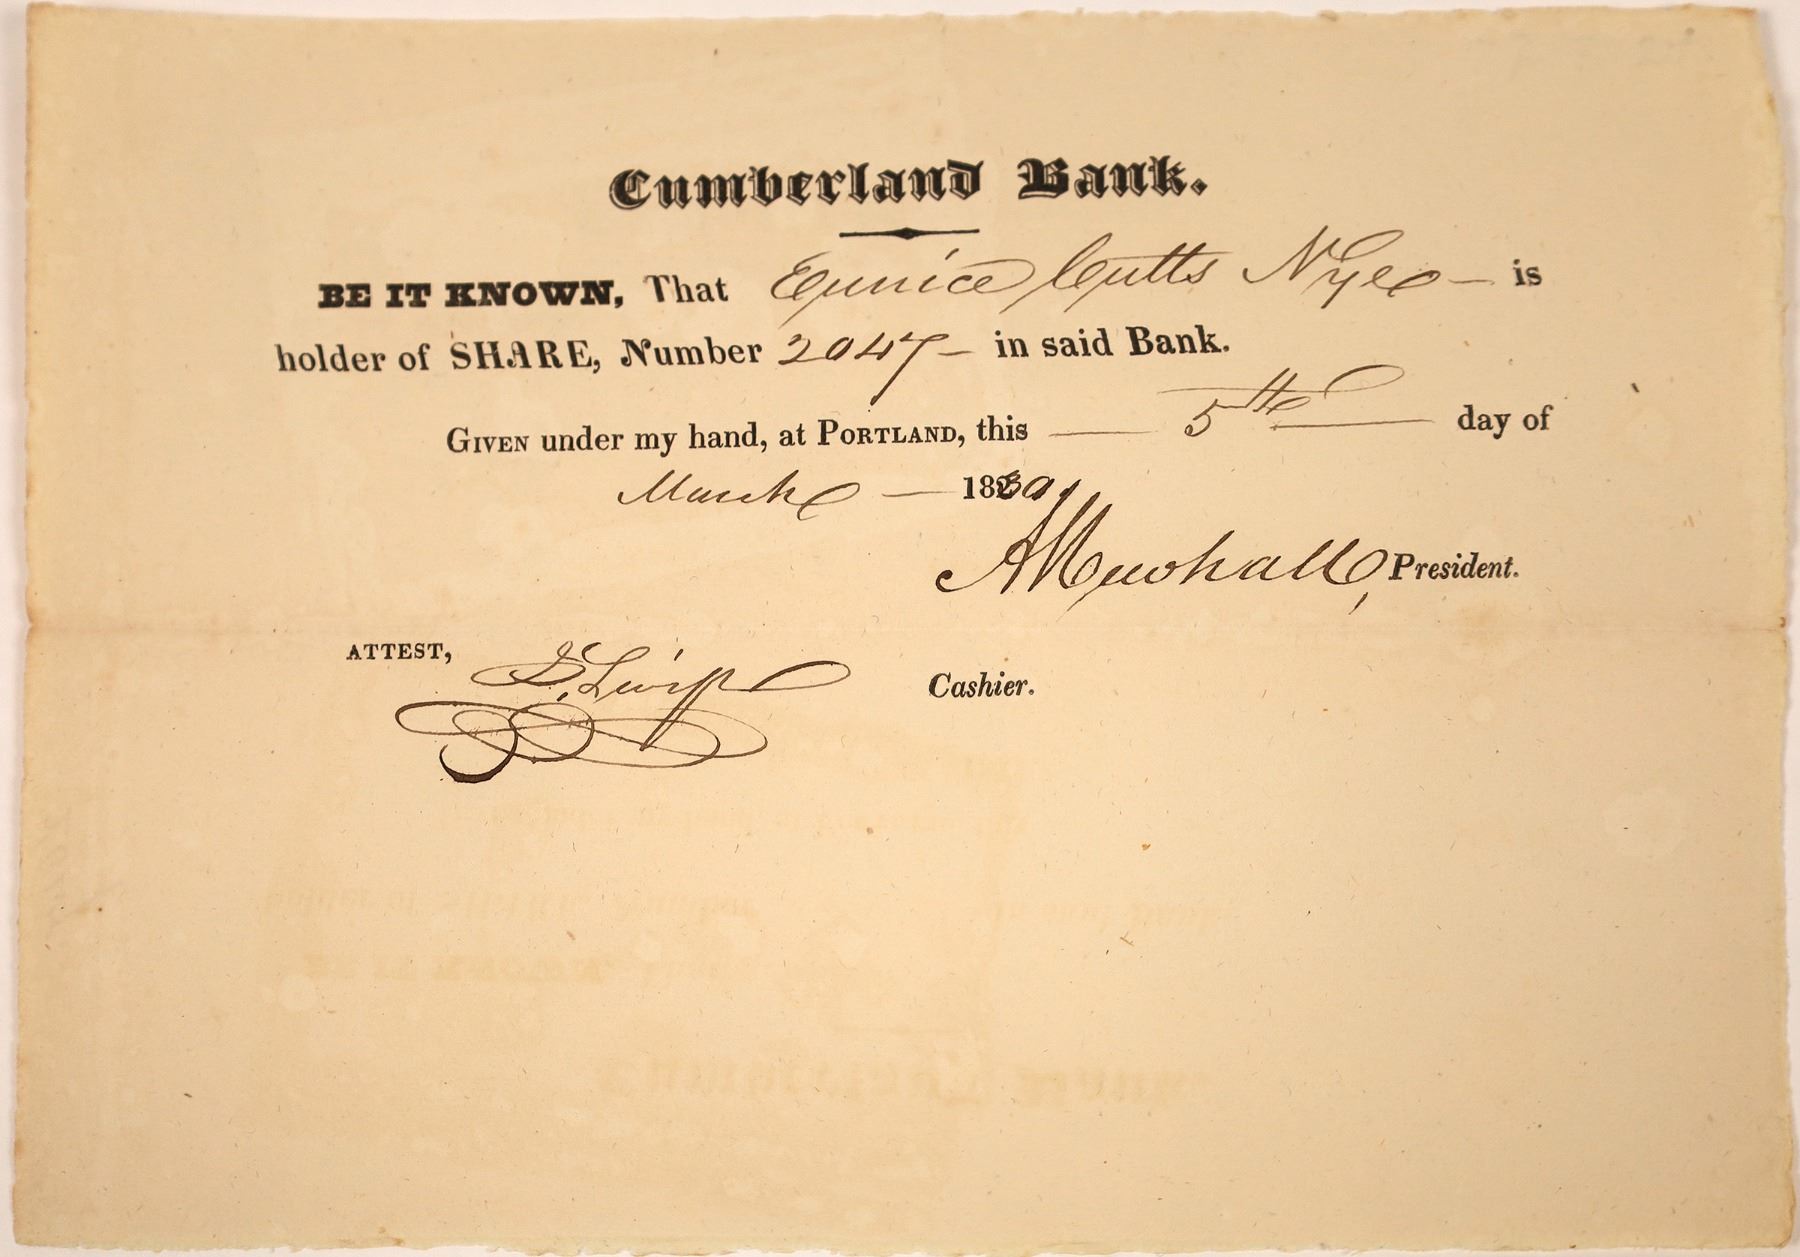 Cumberland Bank.
BE IT KNOWN, That Eunice Cutts Nye is
holder of SHARE, Number 2047 in said Bank.
GIVEN under my hand, at PORTLAND, this 5th day of
March 1830.
A Newhall, President.
ATTEST, Cashier.